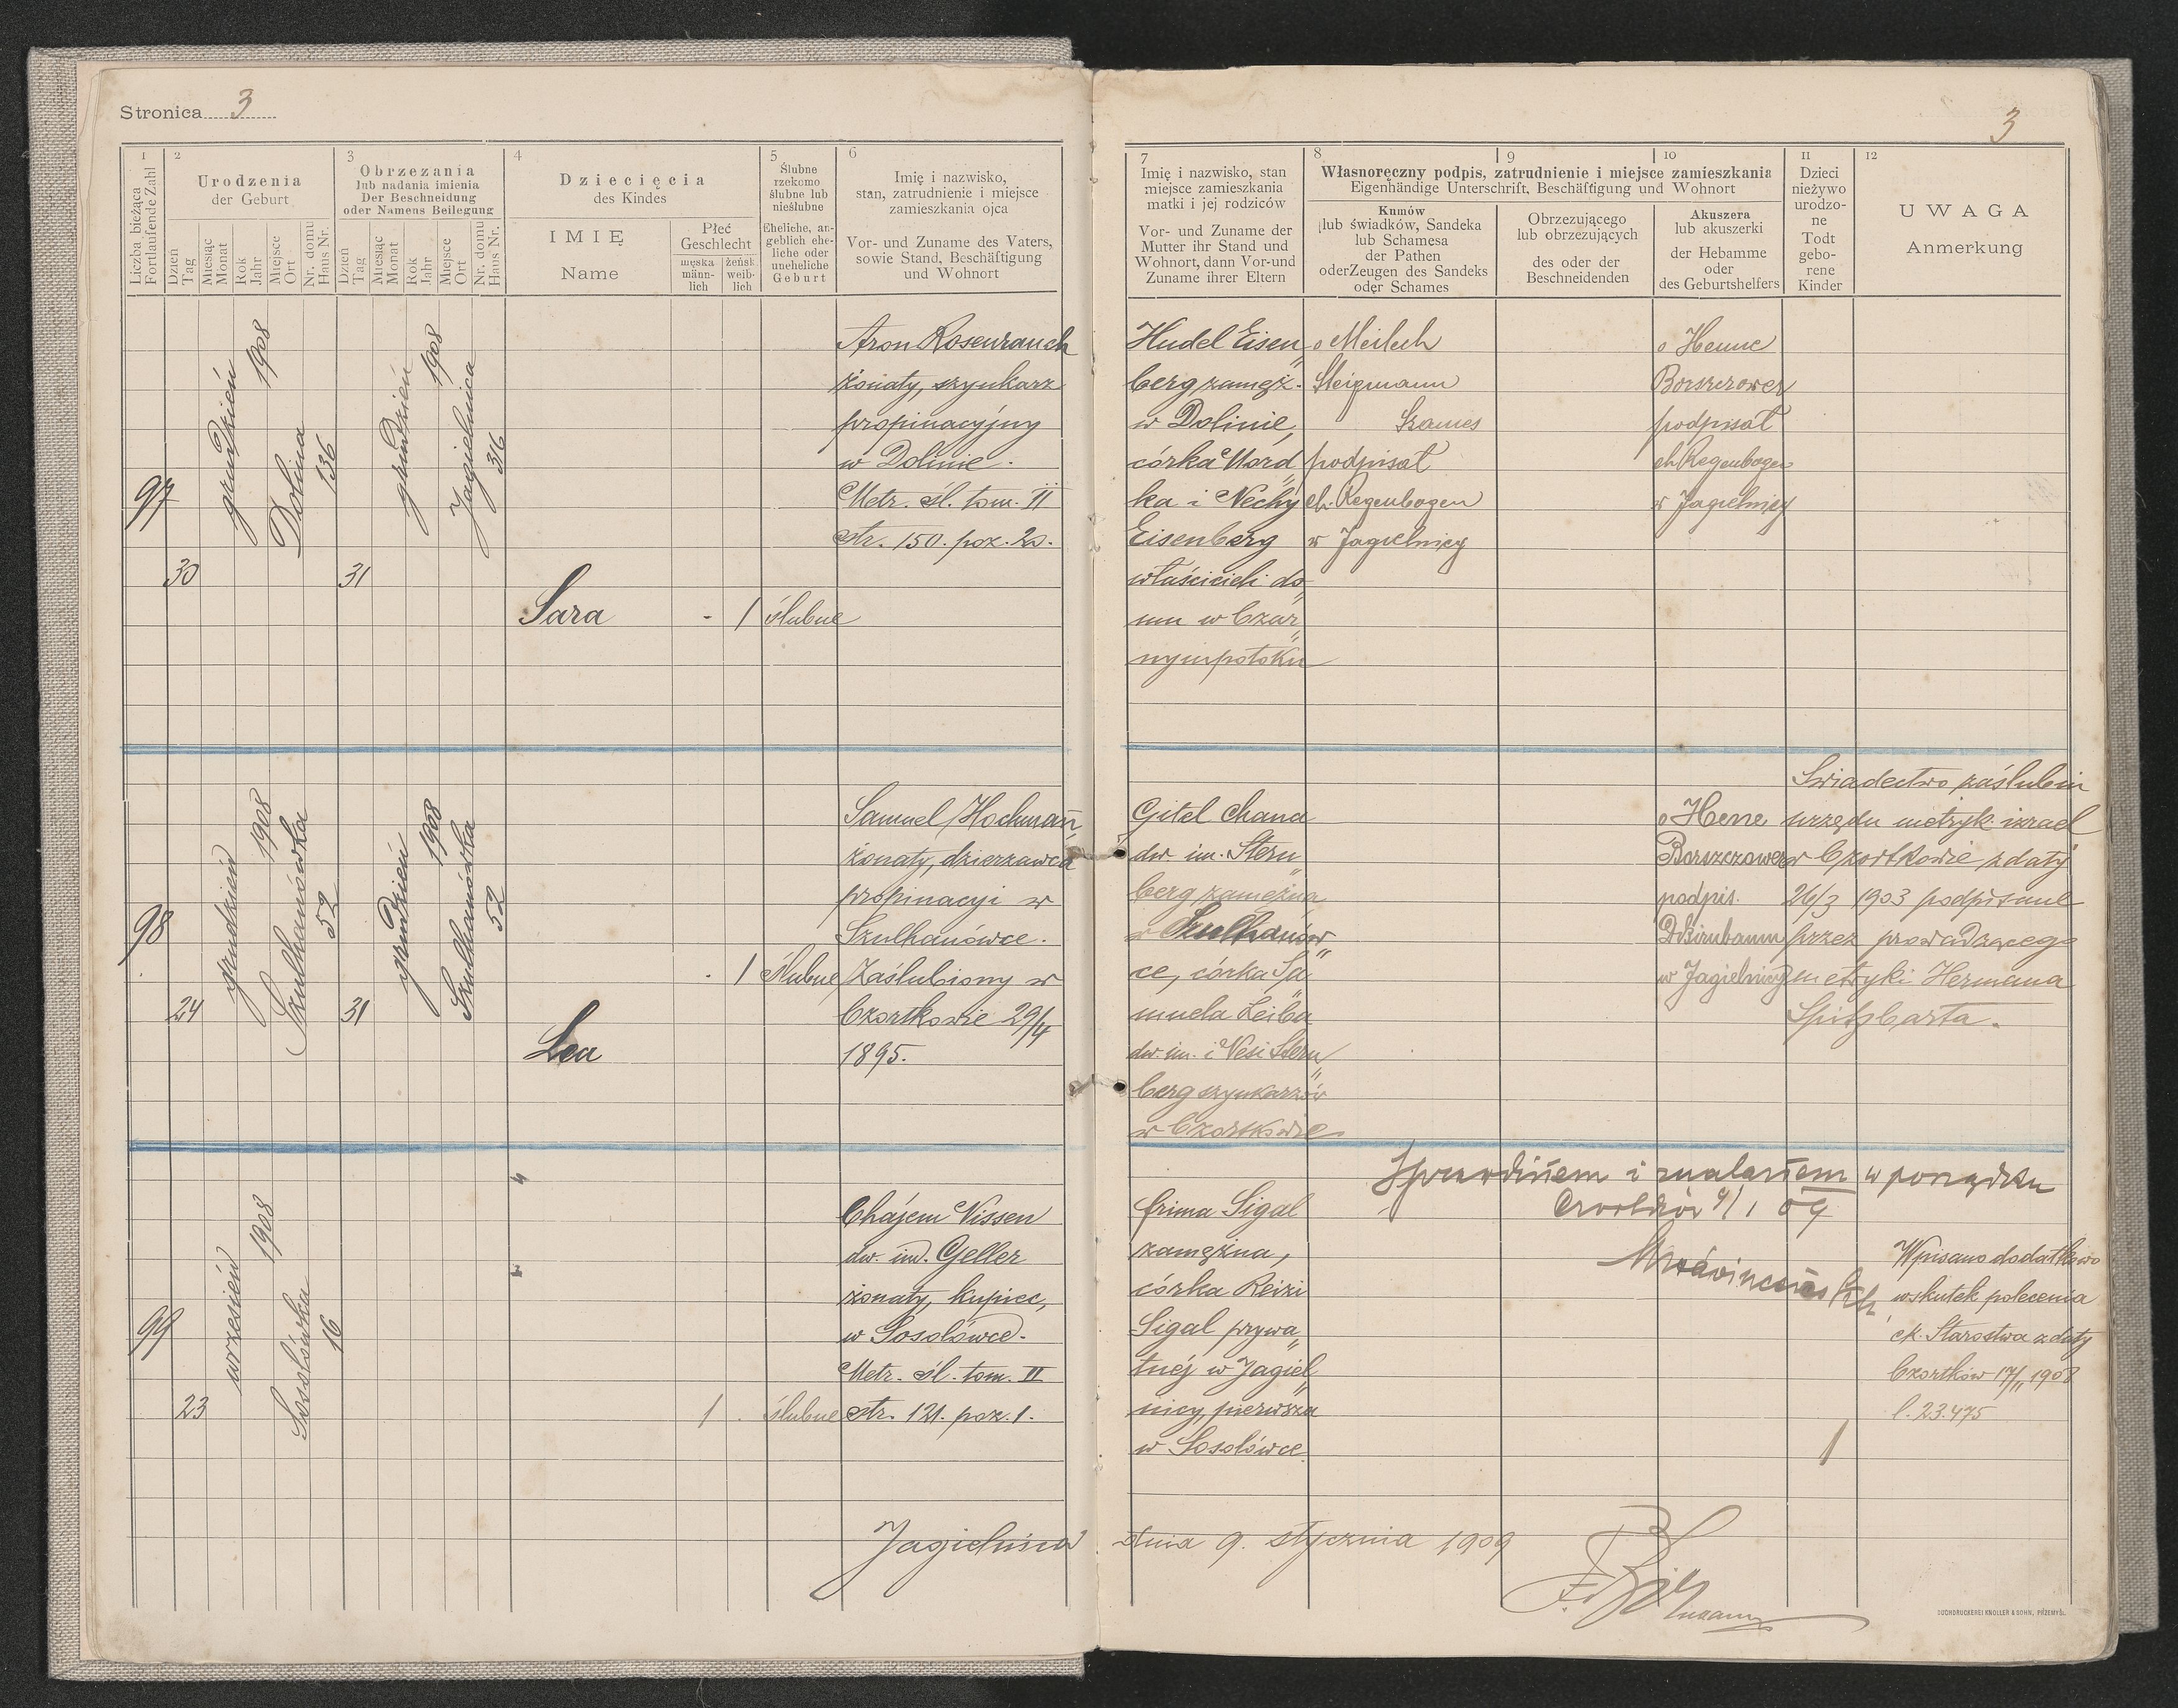 Stronica 3
3
1
Liczba bieżąca
Fortlaufende Zahl
2
Urodzenia
der Geburt
Dzień
Tag
Miesiąc
Monat
Rok
Jahr
Miejsce
Ort
Nr. domu
Haus Nr.
3
Obrzezania
lub nadania imienia
Der Beschneidung
oder Namens Beilegung
Dzień
Tag
Miesiąc
Monat
Rok
Jahr
Miejsce
Ort
Nr. domu
Haus Nr.
4
Dziecięcia
des Kindes
IMIĘ
Name
Płeć
Geschlecht
męska
männ-
lich
żeńsk.
weib-
lich
5
Ślubne
rzekomo
ślubne lub
nieślubne
Eheliche, an-
geblich ehe-
liche oder
uneheliche
Geburt
6
Imię i nazwisko,
stan, zatrudnienie i miejsce
zamieszkania ojca
Vor- und Zuname des Vaters,
sowie Stand, Beschäftigung
und Wohnort
7
Imię i nazwisko, stan
miejsce zamieszkania
matki i jej rodziców
Vor- und Zuname der
Mutter ihr Stand und
Wohnort, dann Vor-und
Zuname ihrer Eltern
8
9
10
Własnoręczny podpis, zatrudnienie i miejsce zamieszkania
Eigenhändige Unterschrift, Beschäftigung und Wohnort
Kumów
lub świadków, Sandeka
lub Schamesa
der Pathen
oder Zeugen des Sandeks
oder Schames
Obrzezującego
lub obrzezujących
des oder der
Beschneidenden
Akuszera
lub akuszerki
der Hebamme
oder
des Geburtshelfers
11
Dzieci
nieżywo
urodzo-
ne
Todt
gebo-
rene
Kinder
12
UWAGA
Anmerkung
97
30
grudzień
1908
Dolina
136
31
grudzień
1908
Jagielnica
316
Sara
- 1 ślubne
Aron Rosenrauch
żonaty, szynkarz
propinacyjny
w Dolinie.
Metr. śl. tom. II
str. 150. poz. 20.
Hudel Eisen„
berg zamęż.
w Dolinie,
córka Mord„
ka i Nechy
Eisenberg
właścicieli do„
mu w Czar„
nympotoku
o Meilech
Steigmann
Szames
podpisał
ch. Regenbogen
w Jagielnicy
o Henne
Borszczower
podpisał
ch Regenbogen
w Jagielnicy
98
24
grudzień
1908
Szulhanówka
52
31
grudzień
1908
Szulhanówka
52
Lea
. 1 ślubne
Samuel Hochman„
żonaty, dzierzawca
propinacyi w
Szulhanówce.
Zaślubiony w
Czortkowie 29/4
1895.
Gitel Chana
dw. im. Stern„
berg zamężna
w Szulhanów„
ce, córka Sa„
muela Leiba
dw. im. i Nesi Stern„
berg szynkarzów
w Czortkowie
o Hene
Borszczower
podpis.
D Birnbaum
w Jagielnicy
Swiadectwo zaślubin
urzędu metryk. izrael
w Czortkowie z daty
26/3 1903 podpisane
przez prowadzącego
metryki Hermana
Spitzbarta.
Sprawdziłem i znalazłem w porządku
Czortków 9/1 09
99
23
wrzesień
1908
Sosolówka
16
1 . ślubne
Chajem Nissen
dw. im. Geller
żonaty, kupiec,
w Sosolówce.
Metr. śl. tom. II
str. 121. poz. 1.
Frima Sigal
zamężna,
córka Reizi
Sigal prywa„
tnéj w Jagiel„
nicy, pierwsza
w Sosolówce
1
Wpisano dodatkowo
wskutek polecenia
ck. Starostwa z daty
Czortków 17/11 1908
l. 23.475
Jagielnica dnia 9. stycznia 1909
BUCHDRUCKEREI KNOLLER & SOHN, PRZEMYŚL.